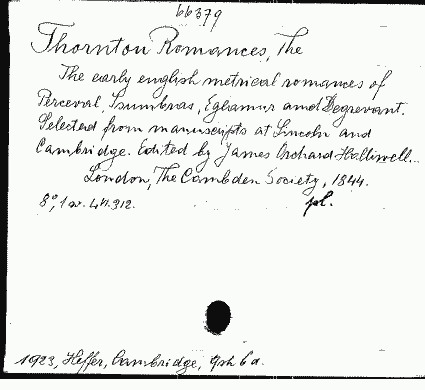 66379
Thornton Romances, The
The early english metrical romances of
Perceval, Isumbras, Eglamur and Degrevant.
Selected from manuscripts at Lincoln and
Cambridge. Edited by James Orchard Halliwell...
London, The Cambden Society, 1844.
8°, 1 w. 312. pl.
1923, Heffer, Cambridge, 6 d.